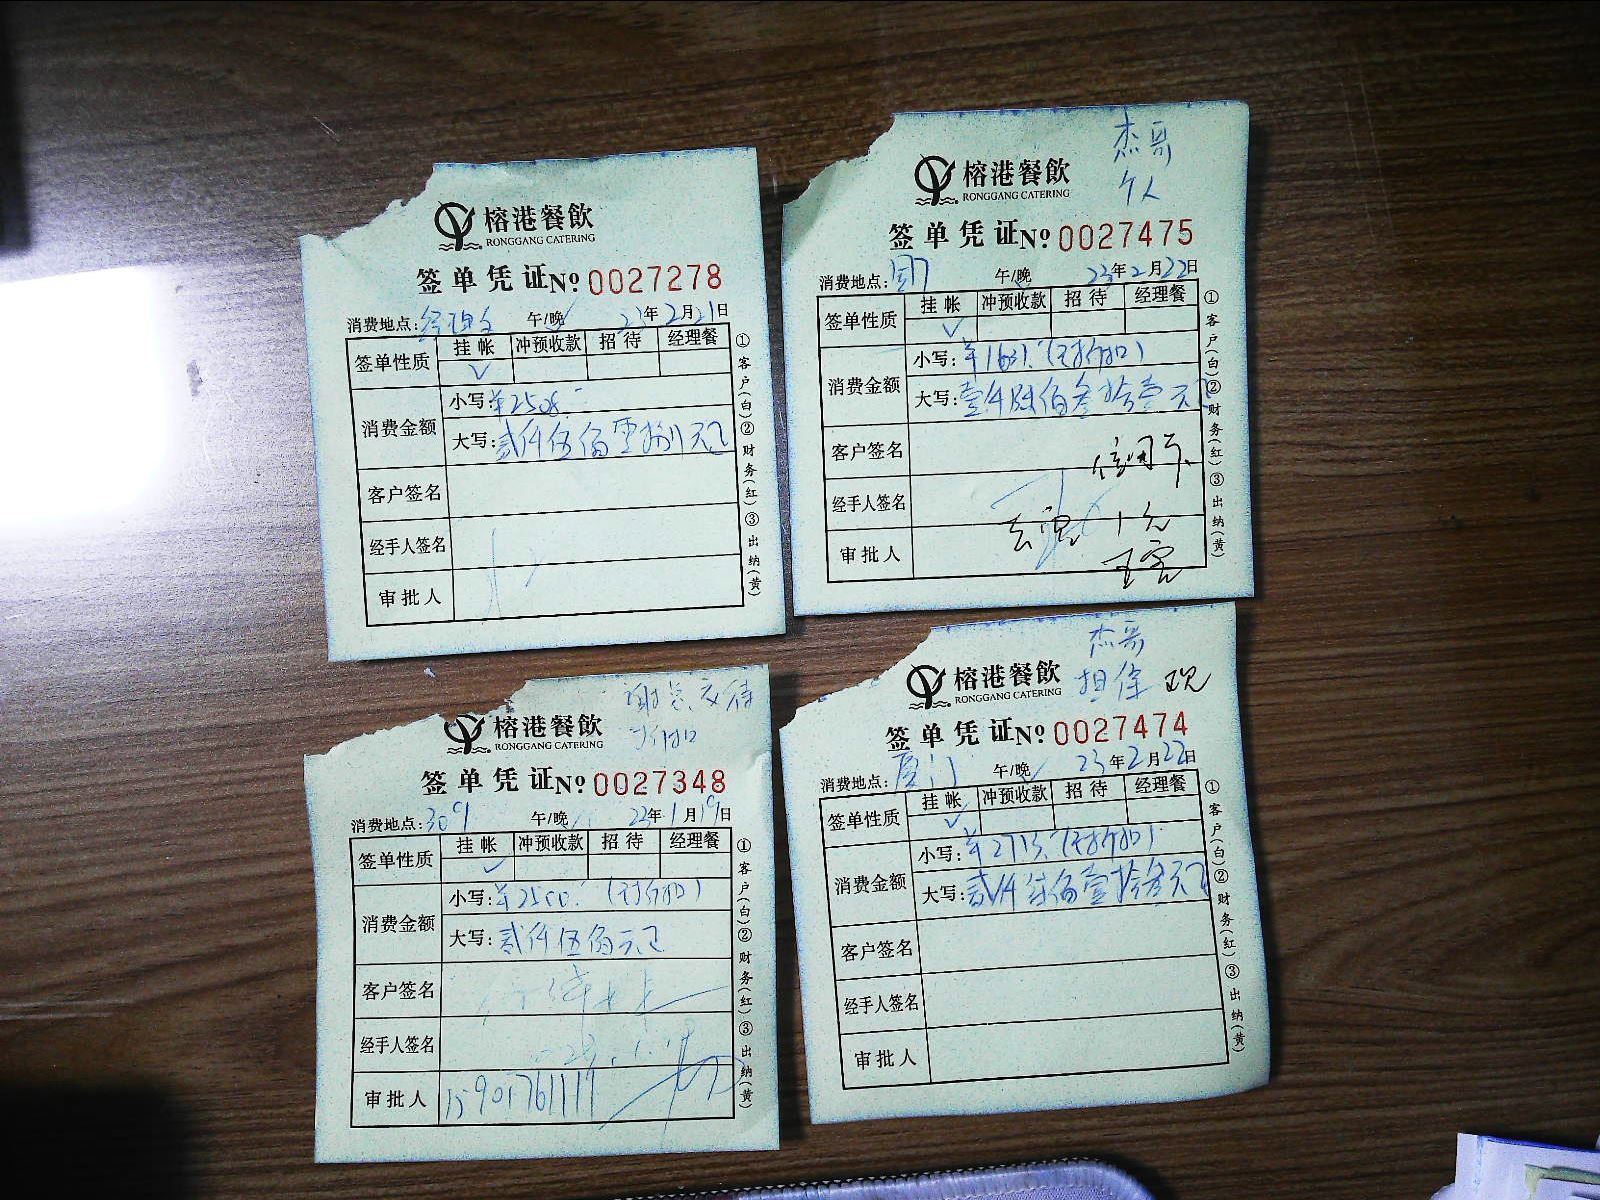 榕港餐飲
RONGGANG CATERING
签单凭证№ 0027278
消费地点: 午/晚 23年2月21日
签单性质 挂帐 冲预收款 招待 经理餐
✓
消费金额 小写:¥2508.-
大写:贰仟伍佰零捌元正
客户签名
经手人签名
审批人
①客户(白)②财务(红)③出纳(黄)
杰哥
个人
榕港餐飲
RONGGANG CATERING
签单凭证№ 0027475
消费地点: 午/晚 23年2月22日
签单性质 挂帐 冲预收款 招待 经理餐
✓
消费金额 小写:¥1631.-(无折扣)
大写:壹仟陆佰叁拾壹元正
客户签名
经手人签名
审批人
①客户(白)②财务(红)③出纳(黄)
谢总交待
折扣
榕港餐飲
RONGGANG CATERING
签单凭证№ 0027348
消费地点:309 午/晚 23年1月19日
签单性质 挂帐 冲预收款 招待 经理餐
✓
消费金额 小写:¥2500.-(无折扣)
大写:贰仟伍佰元正
客户签名
经手人签名
审批人 15901761111
①客户(白)②财务(红)③出纳(黄)
杰哥
担保
榕港餐飲
RONGGANG CATERING
签单凭证№ 0027474
消费地点:厦门 午/晚 23年2月22日
签单性质 挂帐 冲预收款 招待 经理餐
✓
消费金额 小写:¥2713.-(无折扣)
大写:贰仟柒佰壹拾叁元正
客户签名
经手人签名
审批人
①客户(白)②财务(红)③出纳(黄)